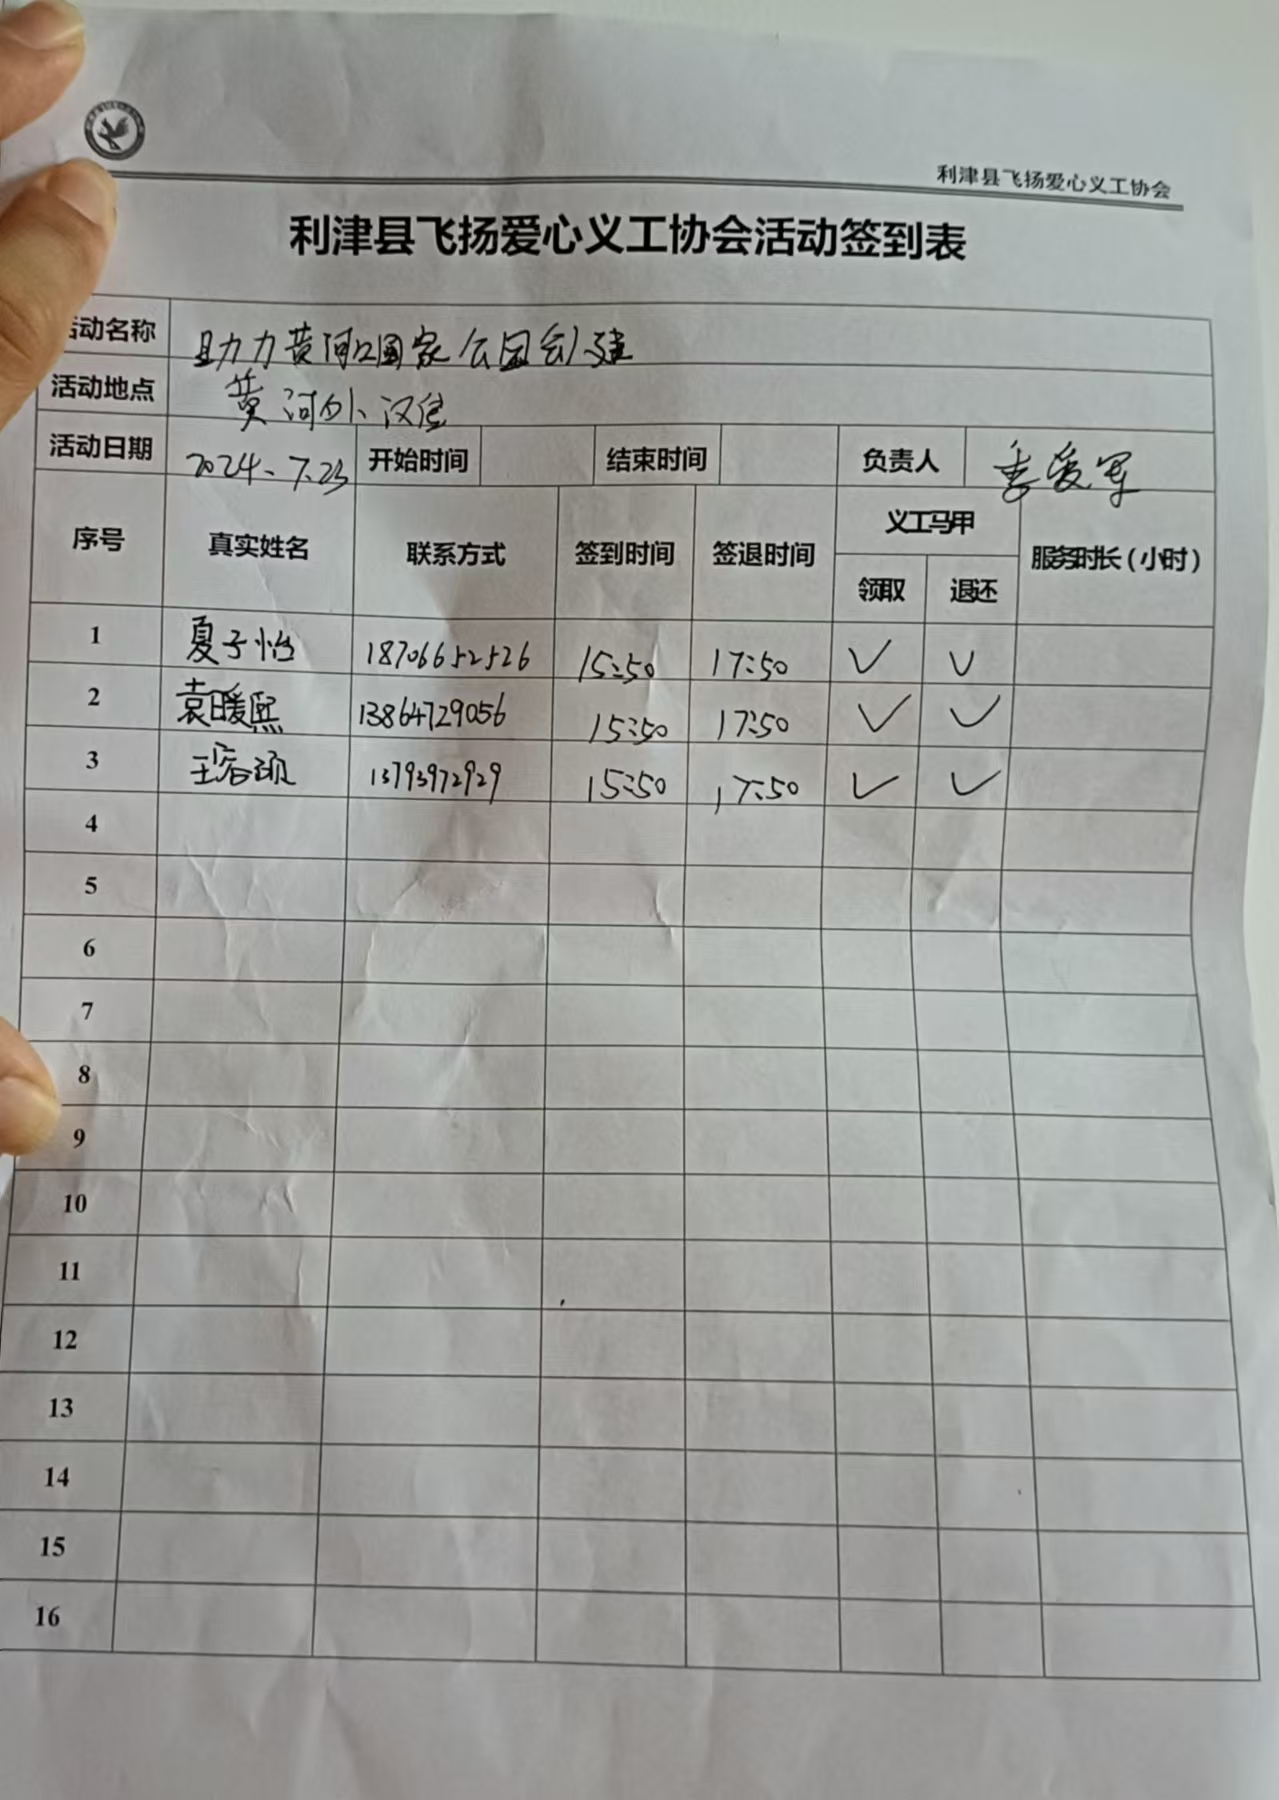 利津县飞扬爱心义工协会
利津县飞扬爱心义工协会活动签到表
活动名称 助力黄河口国家公园创建
活动地点 黄河外、汉
活动日期 2024.7.23 开始时间 结束时间 负责人 李爱军
序号 真实姓名 联系方式 签到时间 签退时间 义工马甲 服务时长(小时)
领取 退还
1 夏子怡 18706652526 15:50 17:50 ✓ ✓
2 袁暖熙 13864729056 15:50 17:50 ✓ ✓
3 13793972929 15:50 17:50 ✓ ✓
4
5
6
7
8
9
10
11
12
13
14
15
16